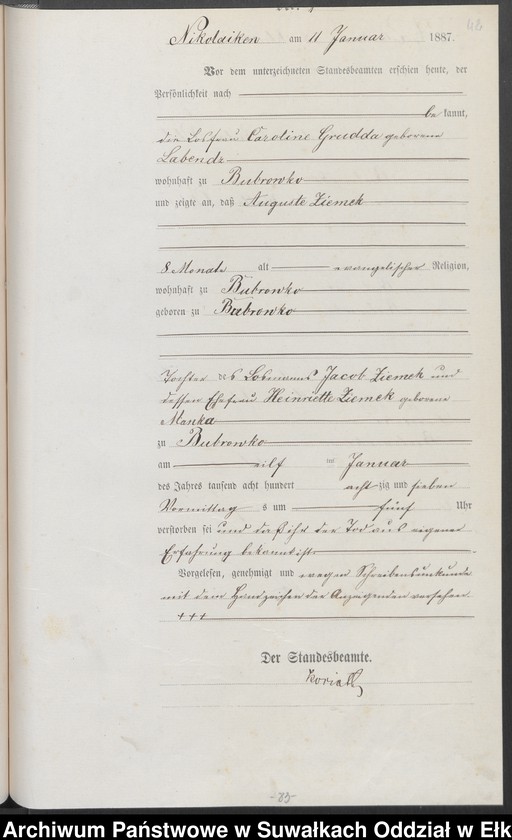 48
Nikolaiken am 11 Januar 1887.
Vor dem unterzeichneten Standesbeamten erschien heute, der
Persönlichkeit nach
be kannt,
die Losfrau Caroline Grudda geborene
Labendz
wohnhaft zu Bubrowko
und zeigte an, daß Auguste Ziemek
8 Monate alt evangelischer Religion,
wohnhaft zu Bubrowko
geboren zu Bubrowko
Tochter des Losmanns Jacob Ziemek und
dessen Ehefrau Heinriette Ziemek geborene
Manka
zu Bubrowko
am eilf ten Januar
des Jahres tausend acht hundert acht zig und sieben
Vormittag s um fünf Uhr
verstorben sei und daß ihr der Tod aus eigener
Erfahrung bekannt ist.
Vorgelesen, genehmigt und wegen Schreibensunkunde
mit dem Handzeichen der Anzeigenden versehen
+++
Der Standesbeamte.
-85-
Archiwum Państwowe w Suwałkach Oddział w Ełk